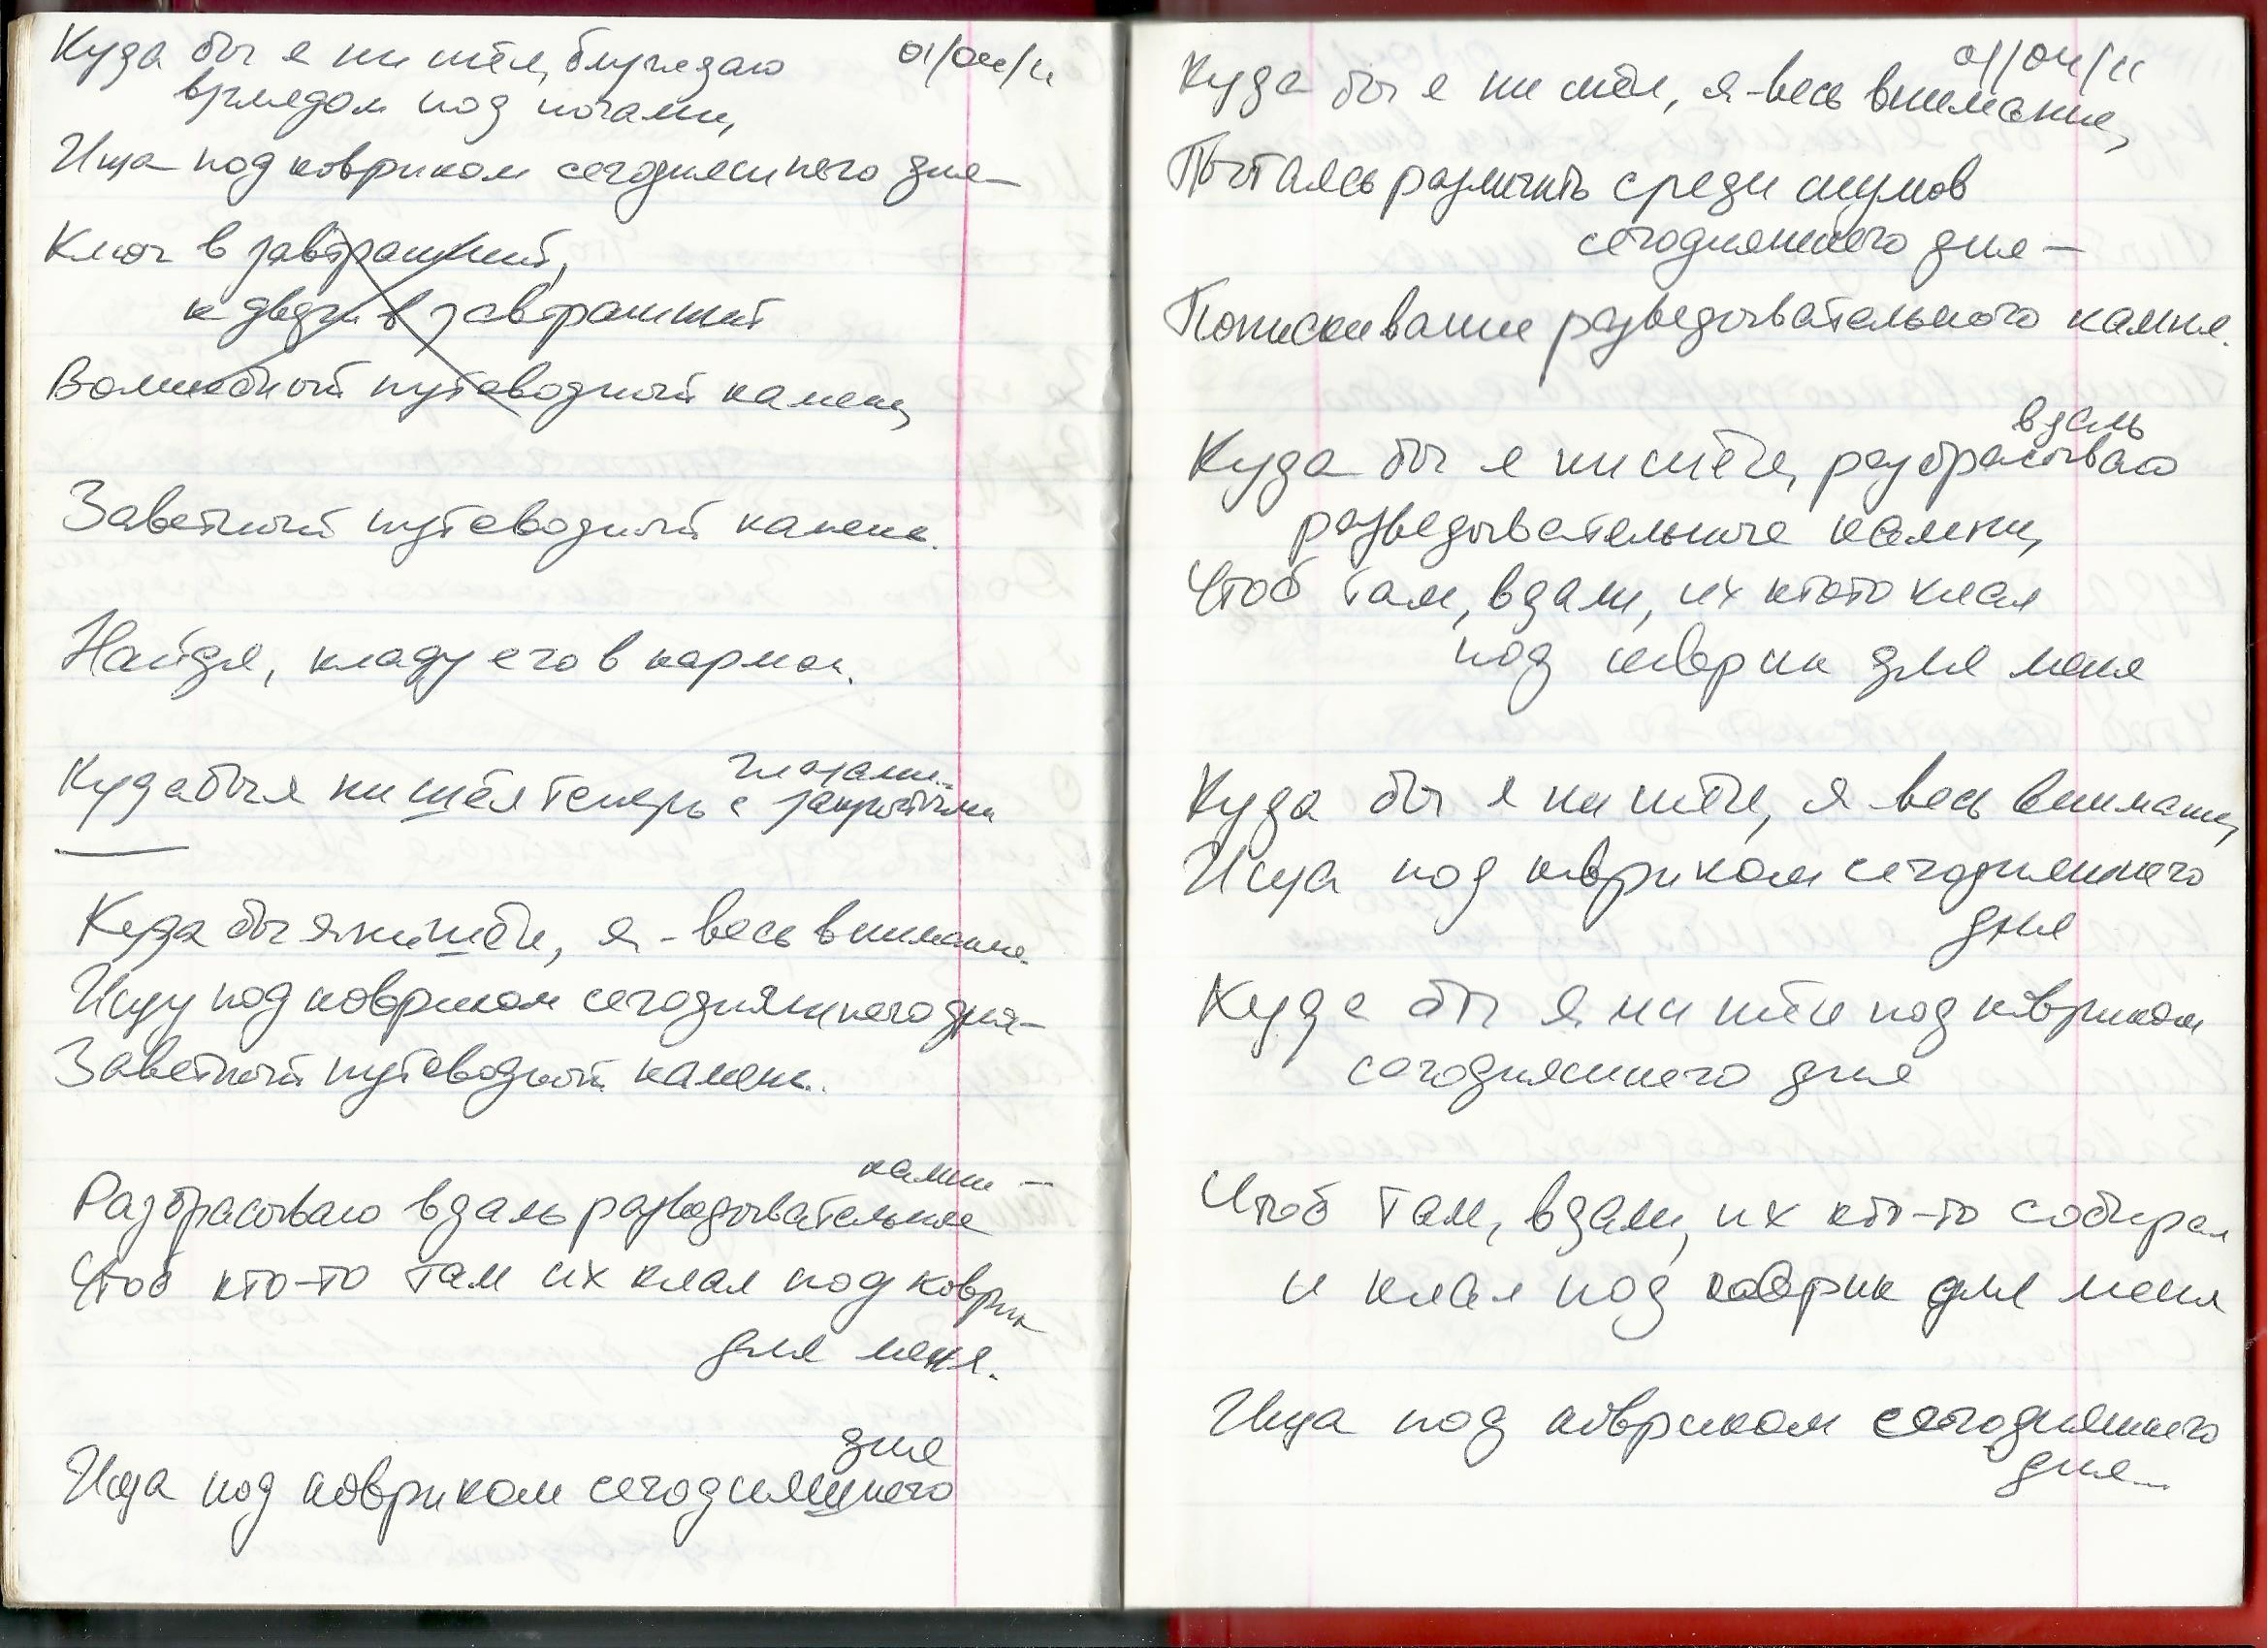 Куда бы я ни шёл, блуждаю 01/04/11
взглядом под ногами,
Ища под ковриком сегодняшнего дня—
Ключ в завтрашний,
к двери в завтрашний
Волшебный путеводный камень,
Заветный путеводный камень.
Найдя, кладу его в карман.
глазами
Куда бы я ни шёл теперь с закрытыми
Куда бы я ни шёл, я - весь внимание.
Ищу под ковриком сегодняшнего дня—
Заветный путеводный камень.
камни —
Разбрасываю вдаль разведывательные
Чтоб кто-то там их клал под коврик
для меня.
дня
Ища под ковриком сегодняшнего
01/04/11
Куда бы я ни шёл, я - весь внимание,
Пытаясь различить среди шумов
сегодняшнего дня —
Попискивание разведывательного камня.
вдаль
Куда бы я ни шёл, разбрасываю
разведывательные камни,
Чтоб там, вдали, их ктото клал
под коврик для меня
Куда бы я ни шёл, я - весь внимание,
Ища под ковриком сегодняшнего
дня
Куда бы я ни шёл под ковриком
сегодняшнего дня
Чтоб там, вдали, их кто-то собирал
и клал под коврик для меня
Ища под ковриком сегодняшнего
дня—